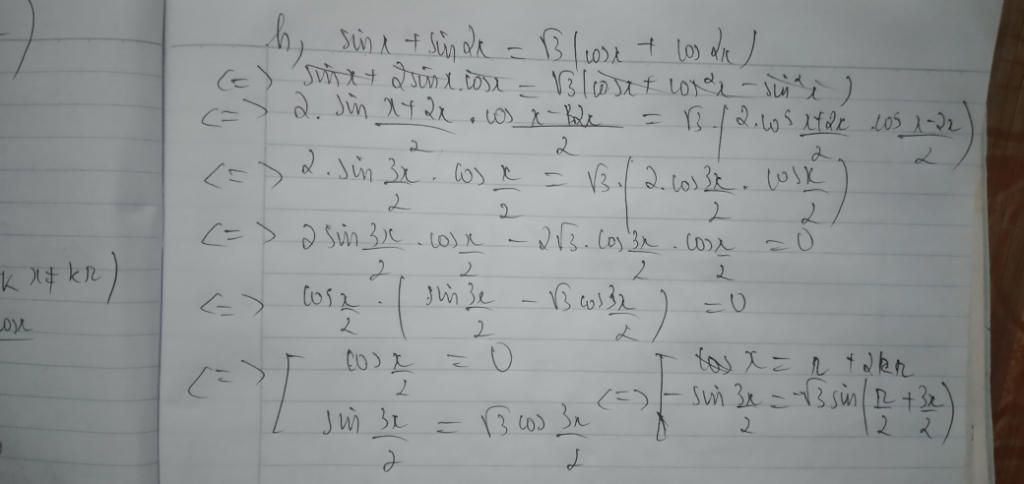 h, sin x + sin 2x = √3 (cos x + cos 2x)
<=> sin x + 2 sin x . cos x = √3 (cos x + cos²x - sin²x)
<=> 2. sin (x+2x)/2 . cos (x-2x)/2 = √3 . (2.cos (x+2x)/2 . cos (x-2x)/2)
<=> 2. sin 3x/2 . cos x/2 = √3 . (2. cos 3x/2 . cos x/2)
<=> 2 sin 3x/2 . cos x/2 - 2√3 . cos 3x/2 . cos x/2 = 0
k x ≠ kπ)
<=> cos x/2 . (sin 3x/2 - √3 cos 3x/2) = 0
<=> [ cos x/2 = 0 [ x = π + 2kπ
sin 3x/2 = √3 cos 3x/2 <=> - sin 3x/2 = -√3 sin (π/2 + 3x/2)